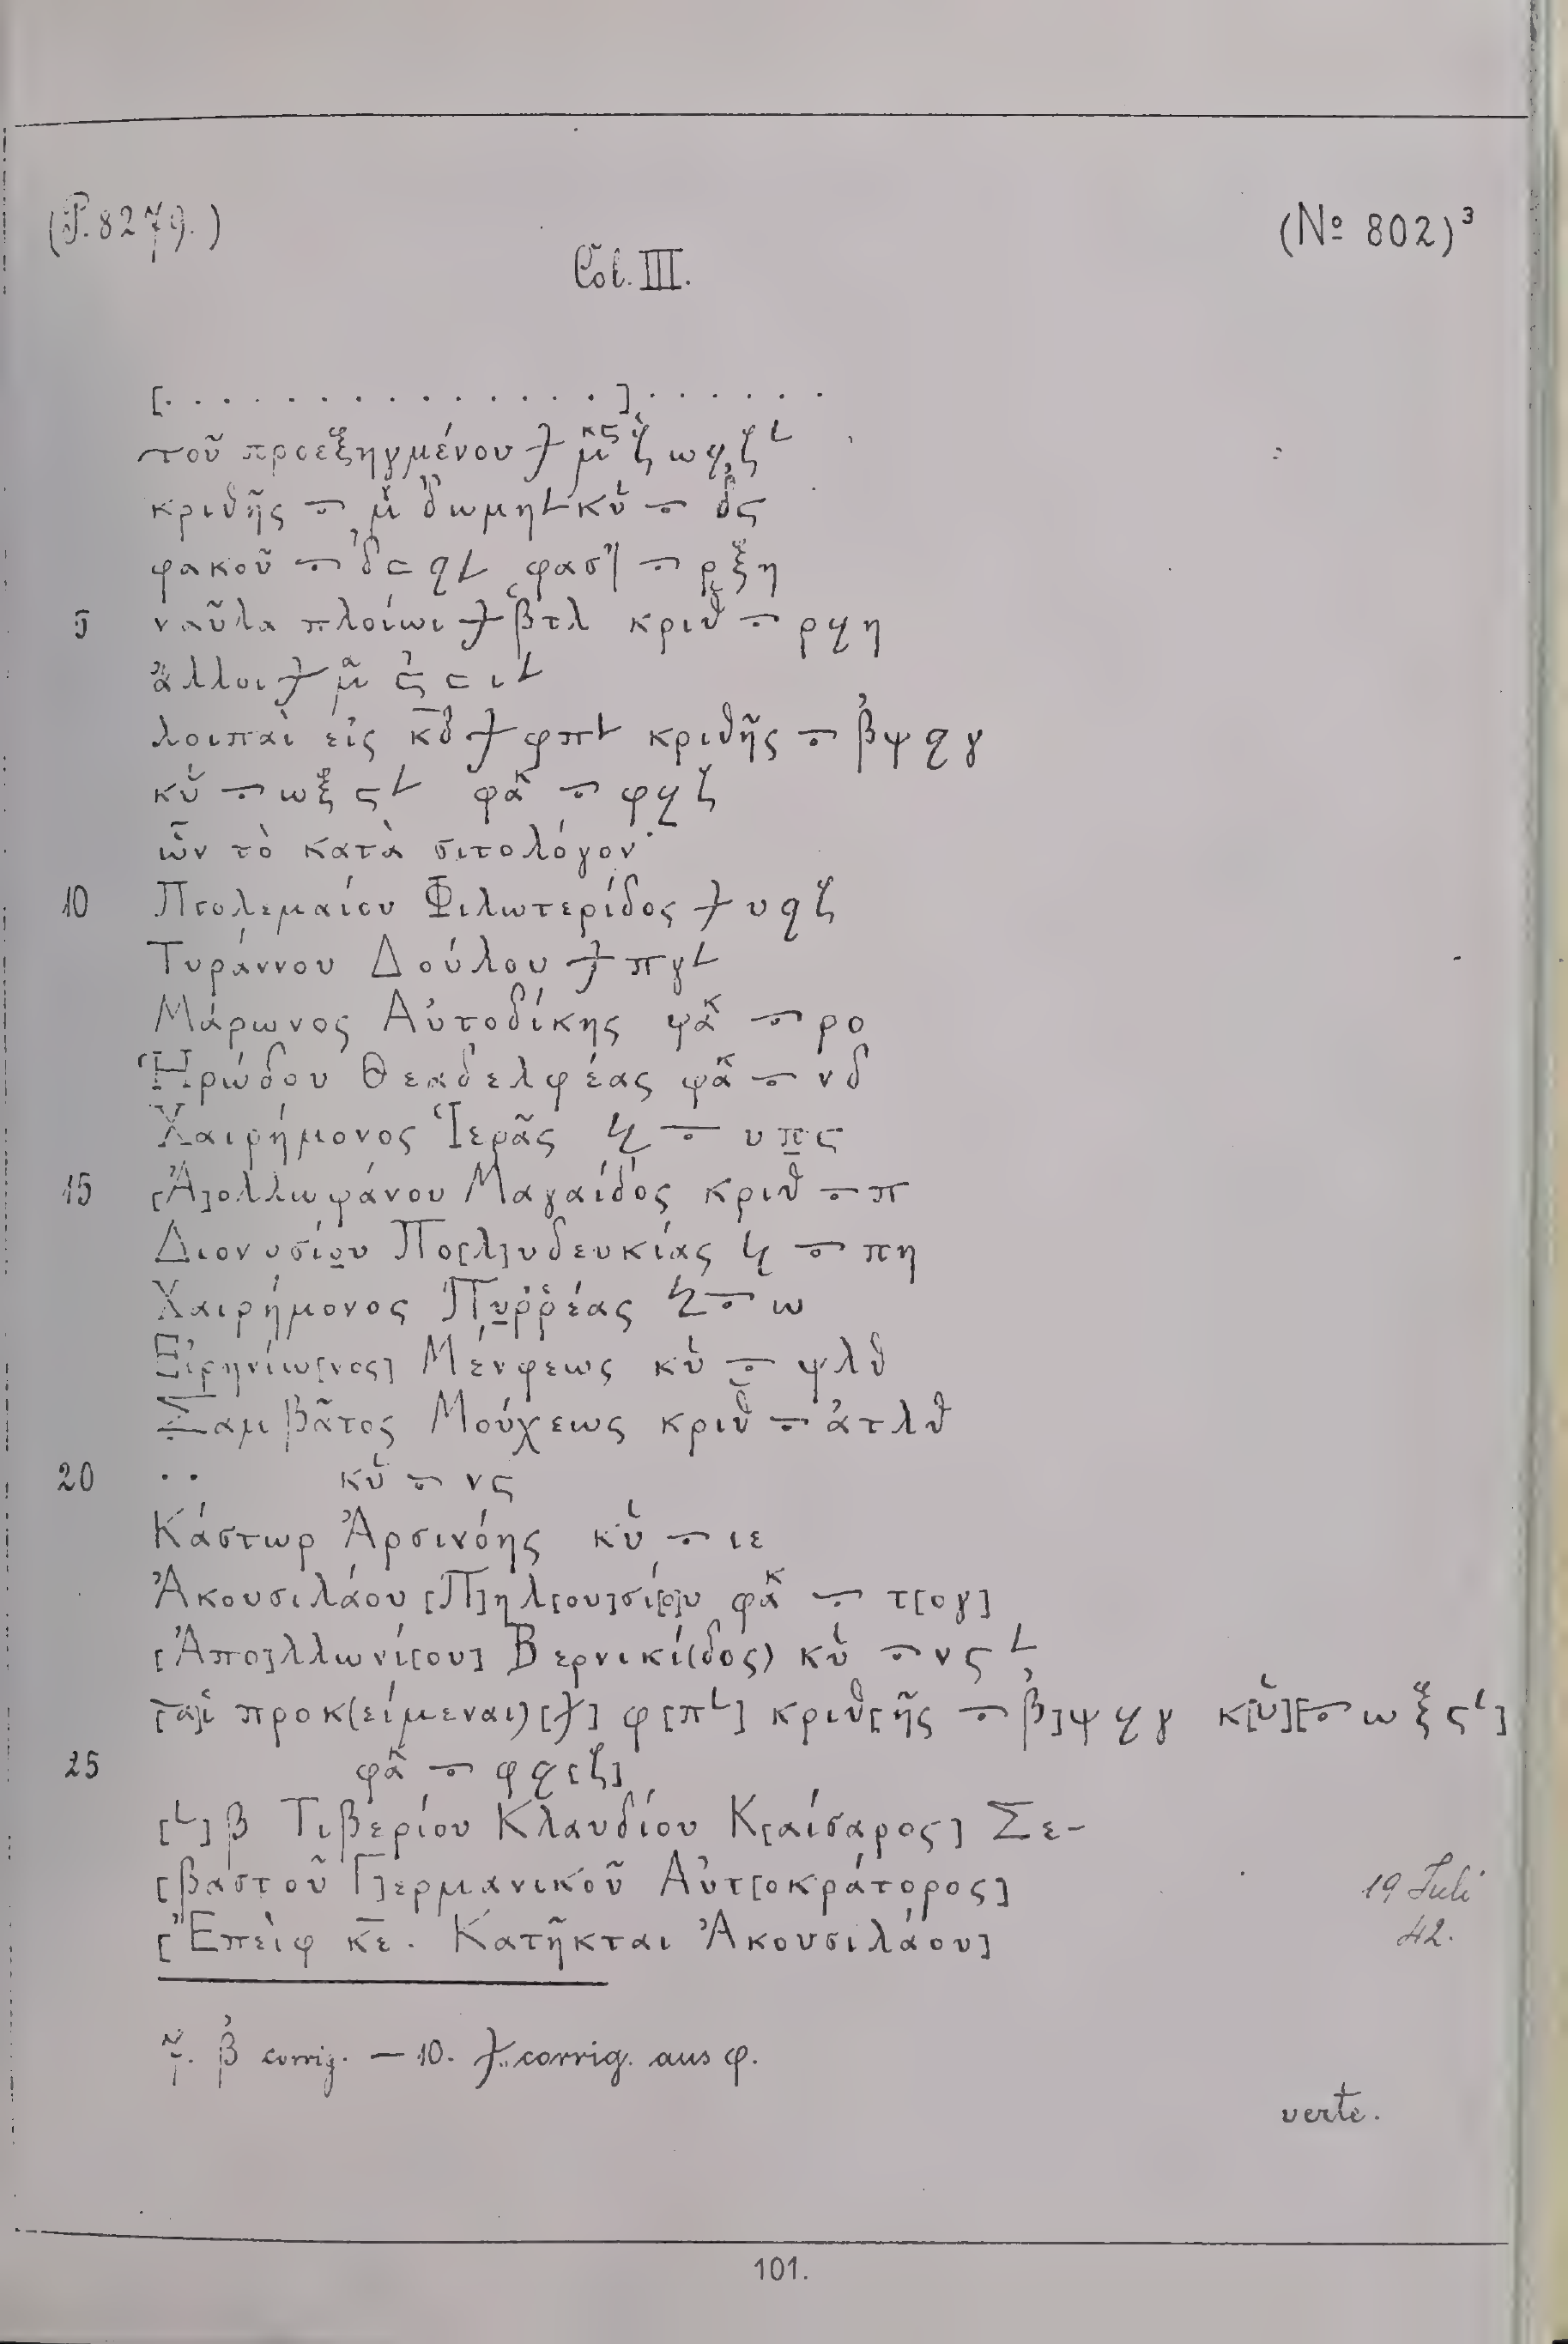 (P. 8279.)
(№ 802)³
Col. III.
[. . . . . . . . . . . . . . .] . . . . . .
τοῦ προεξηγμένου
κριθῆς
φακοῦ φασηλ ρξη
5 ναῦλα πλοίωι βτλ κριθ ρϙη
ἄλλοι
λοιπαὶ εἰς κ̅δ̅ φπ𐅵 κριθῆς ͵βψϙγ
κύ ωξϛ𐅵 φακ φϙζ
ὧν τὸ κατὰ σιτολόγον·
10 Πτολεμαίου Φιλωτερίδος υϙζ
Τυράννου Δούλου πγ𐅵
Μάρωνος Αὐτοδίκης φακ ρο
Ἡρώδου Θεαδελφέας φακ νδ
Χαιρήμονος Ἱερᾶς υπϛ
15 [Ἀ]ολλωφάνου Μαγαίδος κριθ π
Διονυσίου Πο[λ]υδευκίας πη
Χαιρήμονος Πυρρέας ω
Εἰρηνίω[νος] Μένφεως κύ ψλθ
Σαμβᾶτος Μούχεως κριθ ͵ατλθ
20 . . κύ νϛ
Κάστωρ Ἀρσινόης κύ ιε
Ἀκουσιλάου [Π]ηλ[ου]σί[ο]υ φακ τ[ογ]
[Ἀπο]λλωνί[ου] Βερνικί(δος) κύ νϛ𐅵
[α]ἱ προκ(είμεναι) φ[π𐅵] κριθ[ῆς ͵β]ψϙγ κ[ύ] [ωξϛ𐅵]
25 φακ φϙ[ζ]
[𐅹] β Τιβερίου Κλαυδίου Κ[αίσαρος] Σε-
[βαστοῦ Γ]ερμανικοῦ Αὐτ[οκράτορος]
19 Juli
[Ἐπεὶφ κ̅ε̅. Κατῆκται Ἀκουσιλάου]
42.
7. ͵β corrig. — 10. corrig. aus φ.
verte.
101.